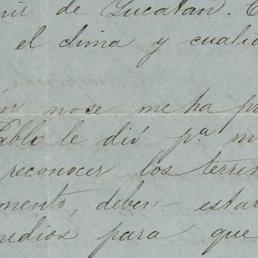 nir de Yucatan. C
el clima y cualid
ón nose me ha pa
Pablo le dió p.ª m
reconocer los terren
mento, deben estar
medios para que